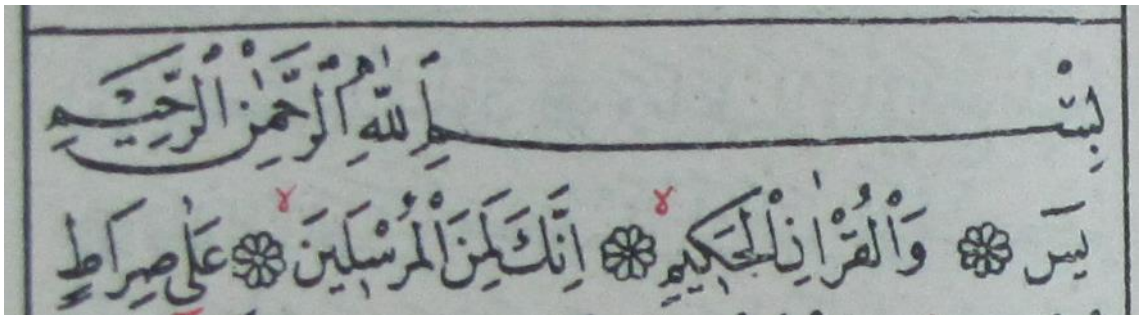 بِسْمِ اللّٰهِ الرَّحْمٰنِ الرَّحِيمِ
يٰسٓ ۝ وَالْقُرْاٰنِ الْحَكِيمِ ۝ اِنَّكَ لَمِنَ الْمُرْسَلِينَ ۝ عَلٰى صِرَاطٍ